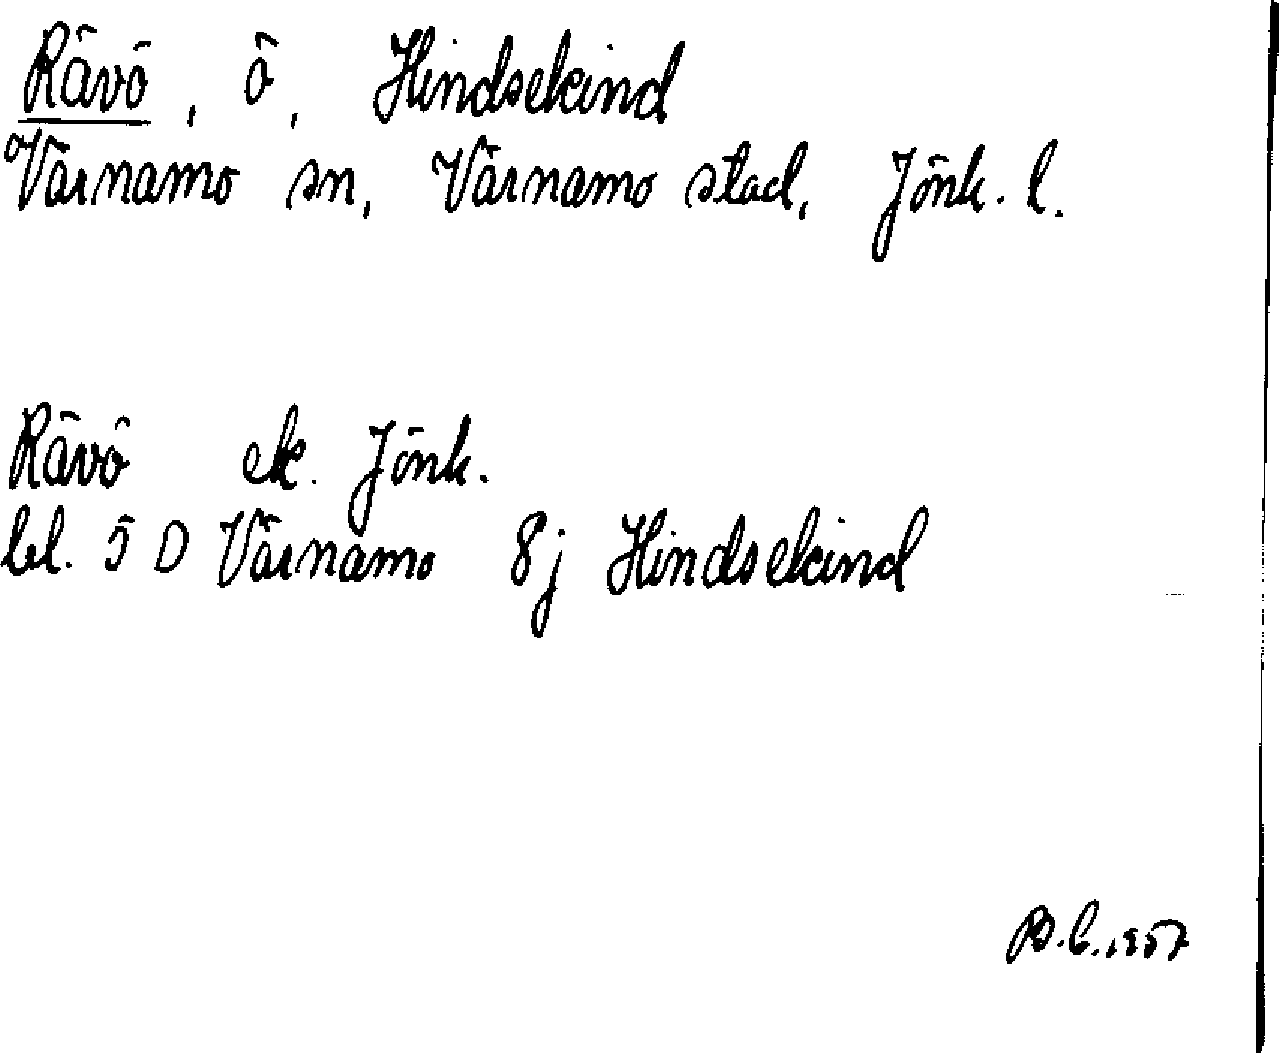 Rävö, ö, Hindsekind
Värnamo sn, Värnamo stad, Jönk. l.
Rävö ek. Jönk.
bl. 5 D Värnamo 8j Hindsekind
B.C. 1957